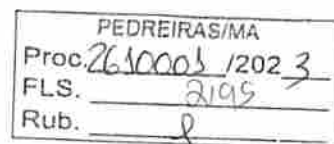 PEDREIRAS/MA
Proc. 2610001 /2023
FLS. 2195
Rub.